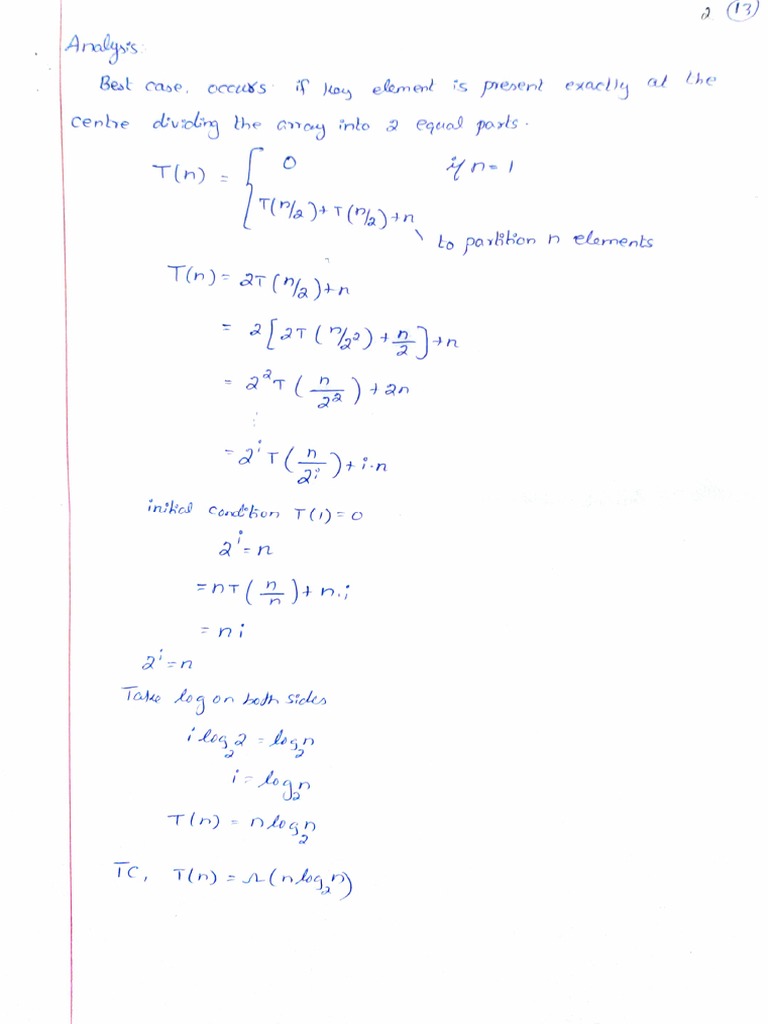 2 (13)
Analysis:
Best case, occurs if key element is present exactly at the
centre dividing the array into 2 equal parts.
T(n) = { 0 if n = 1
T(n/2) + T(n/2) + n
to partition n elements
T(n) = 2T(n/2) + n
= 2[2T(n/2²) + n/2] + n
= 2²T(n/2²) + 2n
⋮
= 2ⁱT(n/2ⁱ) + i·n
initial condition T(1) = 0
2ⁱ = n
= nT(n/n) + n.i
= ni
2ⁱ = n
Take log on both sides
i log₂2 = log₂n
i = log₂n
T(n) = n log₂n
TC, T(n) = Ω(n log₂n)